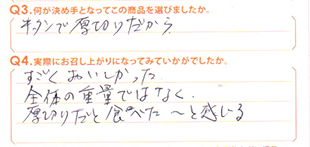 Q3.何が決め手となってこの商品を選びましたか。
牛タンで厚切りだから
Q4.実際にお召し上がりになってみていかがでしたか。
すごくおいしかった
全体の重量ではなく、
厚切りだと食べた〜と感じる